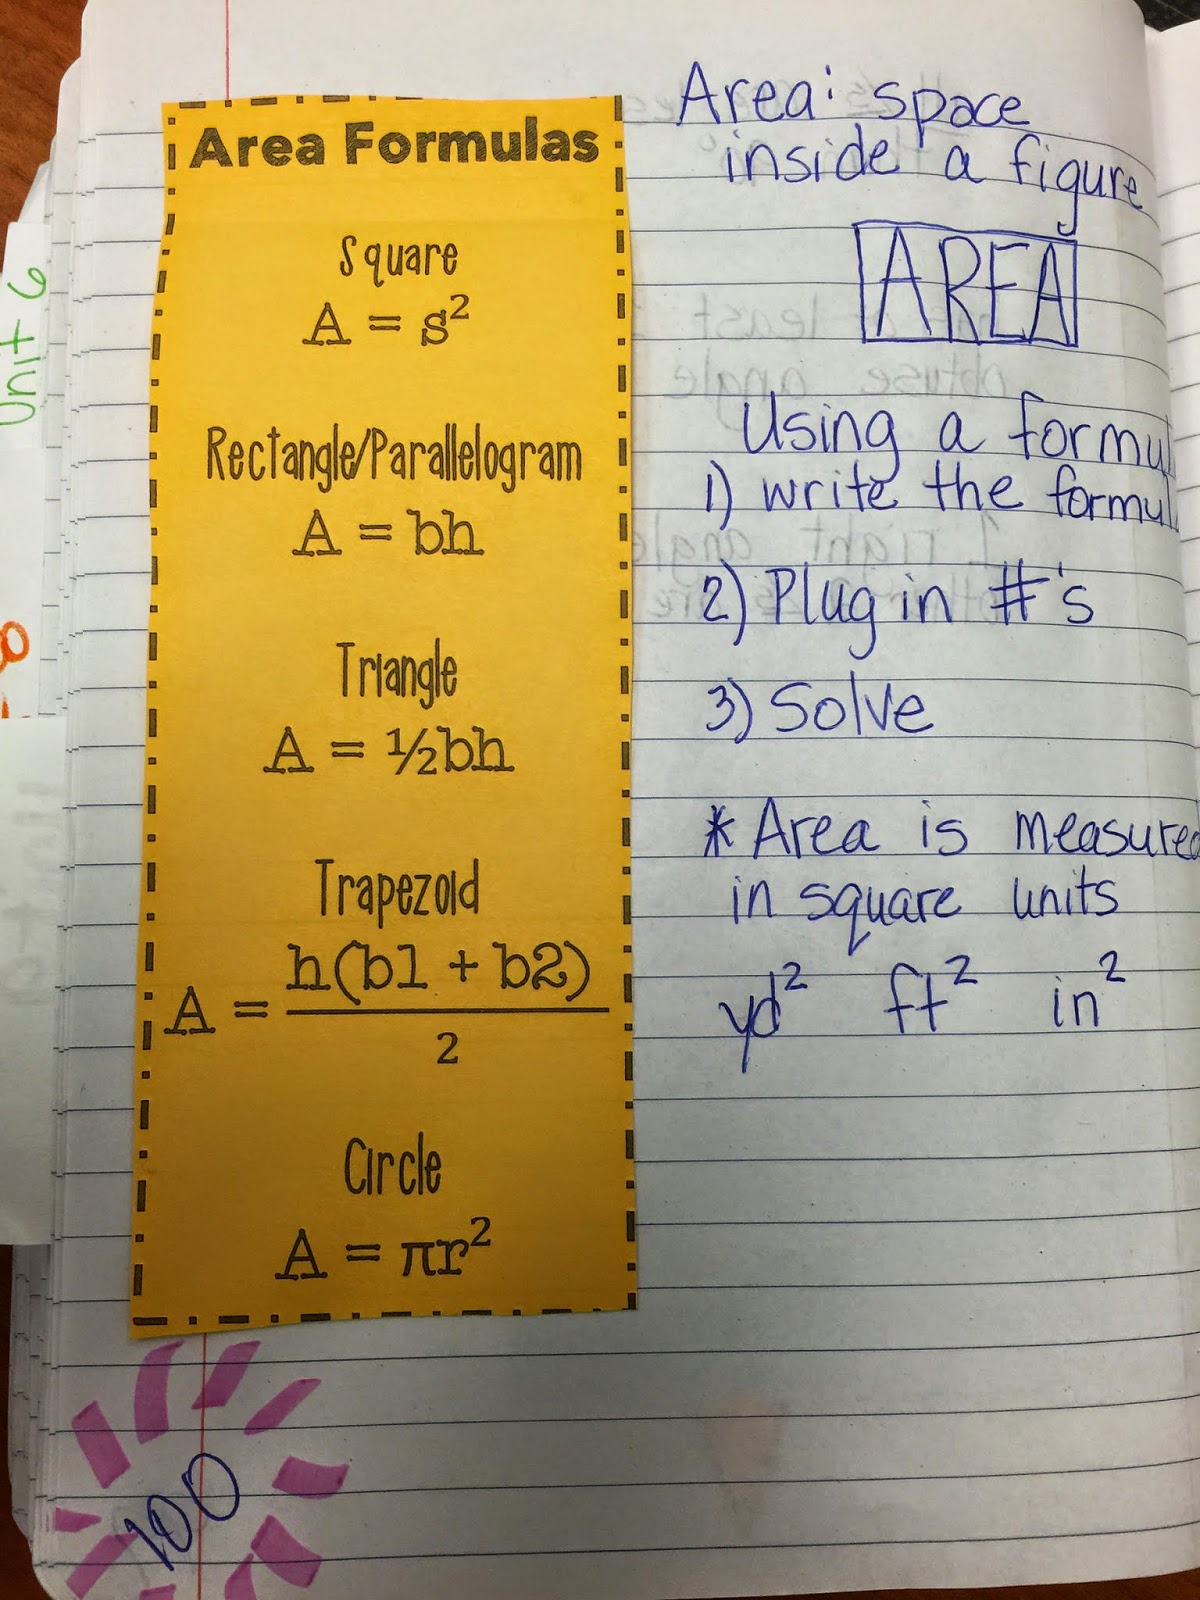 Area Formulas
Square
A = s²
Rectangle/Parallelogram
A = bh
Triangle
A = ½bh
Trapezoid
h(b1 + b2)
A =
2
Circle
A = πr²
Area: space
inside a figure
AREA
Using a formul
1) write the formul
2) Plug in #'s
3) Solve
* Area is measured
in square units
yd² ft² in²
Unit 6
100